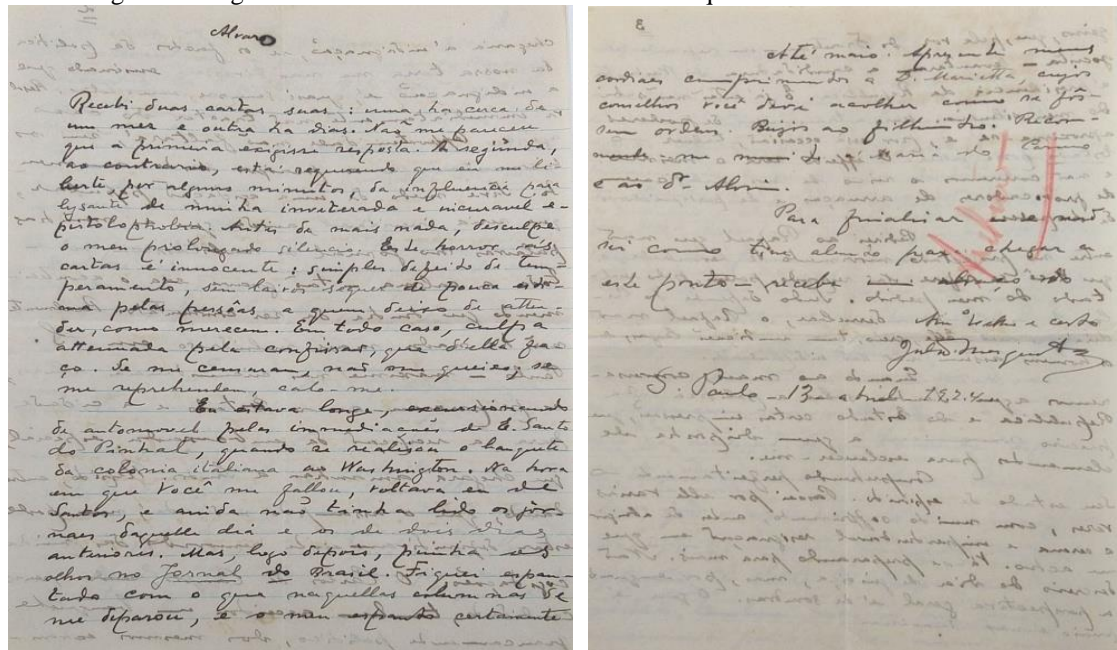 Alvaro
Recebi duas cartas suas: uma ha cerca de
um mez e outra ha dias. Não me pareceu
que a primeira exigisse resposta. A segunda,
ao contrario, está requerendo que eu me li-
berte por alguns minutos, da influencia para-
lysante de minha inveterada e incuravel e-
pistolophobia. Antes de mais nada, desculpe
o meu prolongado silencio. Este horror ás
cartas é innocente: simples defeito de tem-
peramento, sem laivos sequer de pouca esti-
ma pelas pessôas a quem deixo de atten-
der, como merecem. Em todo caso, culpa
attenuada pela confissão, que d'ella fa-
ço. Se me censuram, não me queixo; se
me reprehendem, calo-me.
Eu estava longe, excursionando
de automovel pelas immediações de E. Santo
do Pinhal, quando se realisou o banquete
da colonia italiana ao Washington. Na hora
em que Você me fallou, voltava eu de
Santos, e ainda não tinha lido os jor-
naes daquelle dia e os de dois dias
anteriores. Mas logo depois, punha os
olhos no Jornal do Brasil. Fiquei espan-
tado com o que naquellas columnas se
me deparou, e o meu espanto certamente
3
Até maio. Apresente meus
cordiaes cumprimentos a D. Marietta, cujos
conselhos Você deve acolher como se fôs-
sem ordens. Beijos ao filhinho. Recom-
mende-me a Maria do Carmo
e ao Dr.
Para finalizar não
sei como tive alento para chegar a
este ponto – receba abraço do
Am.º velho e certo
Julio Mesquita
S. Paulo – 13 abril 1924